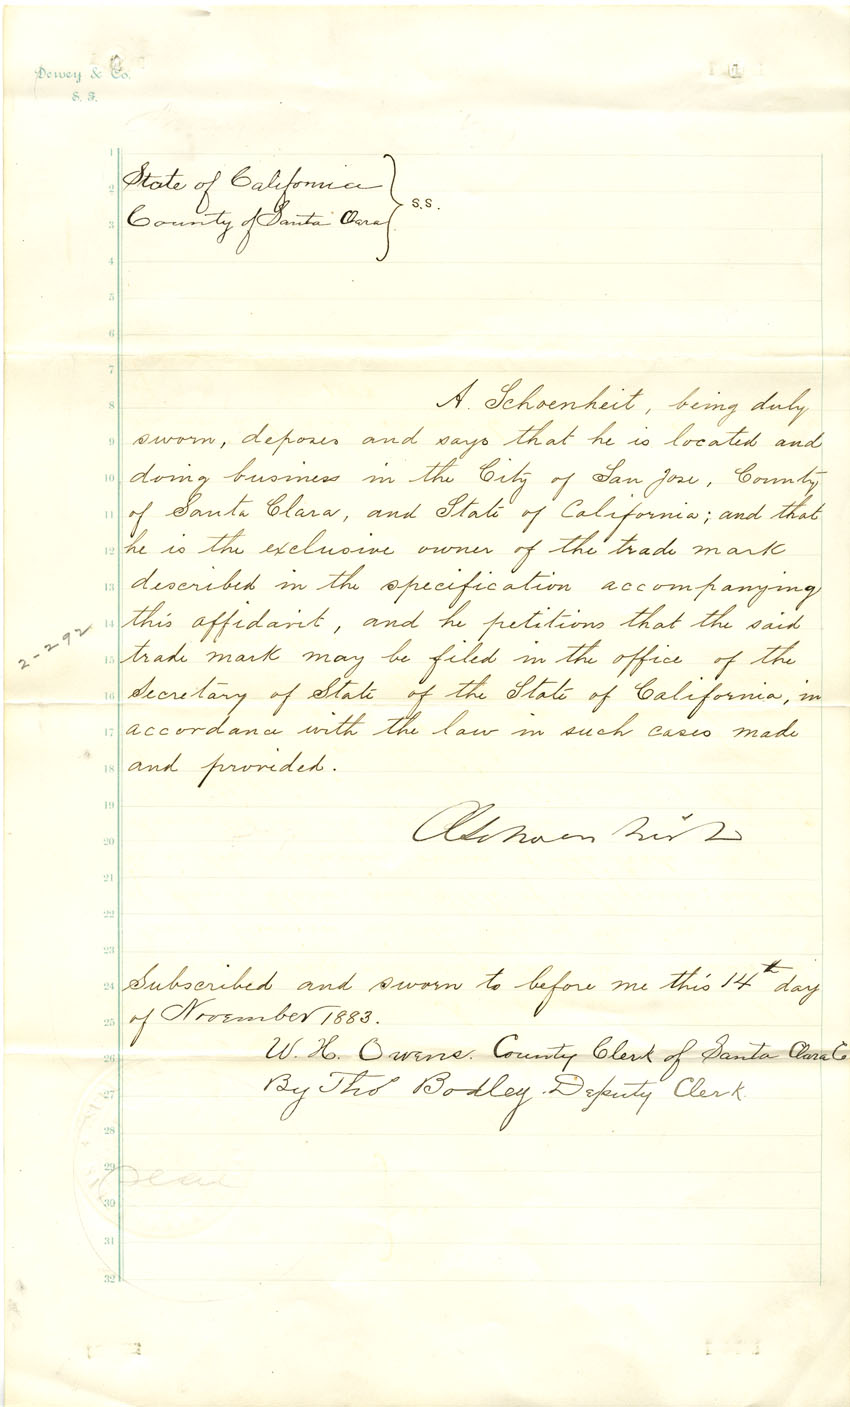 Dewey & Co.
S. F.
State of California
County of Santa Clara
S.S.
1
2
3
4
5
6
7
8
9
10
11
12
13
14
15
16
17
18
19
20
21
22
23
24
25
26
27
28
29
30
31
32
A. Schoenheit, being duly
sworn, deposes and says that he is located and
doing business in the City of San Jose, County
of Santa Clara, and State of California; and that
he is the exclusive owner of the trade mark
described in the specification accompanying
this affidavit, and he petitions that the said
trade mark may be filed in the office of the
Secretary of State of the State of California, in
accordance with the law in such cases made
and provided.
2-292
A Schoenheit
Subscribed and sworn to before me this 14th day
of November 1883.
W. H. Owens. County Clerk of Santa Clara C
By Thos Bodley Deputy Clerk.
Seal